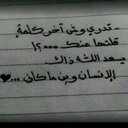 - تدري وش آخر كلمة
قلتها عنك ....؟!
يسعد الله ذاك
الإنسان وين ما كان ...♥